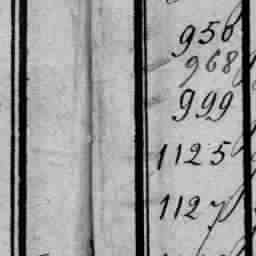 956
968
999
1125
1127